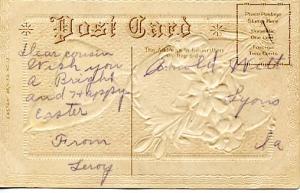 Post Card
Place Postage
Stamp Here
Domestic
One Cent
Foreign
Two Cents
Dear cousin
Wish you
a Bright
and Happy
Easter
From
Leroy
Arnold Witt
Lyons
Ia